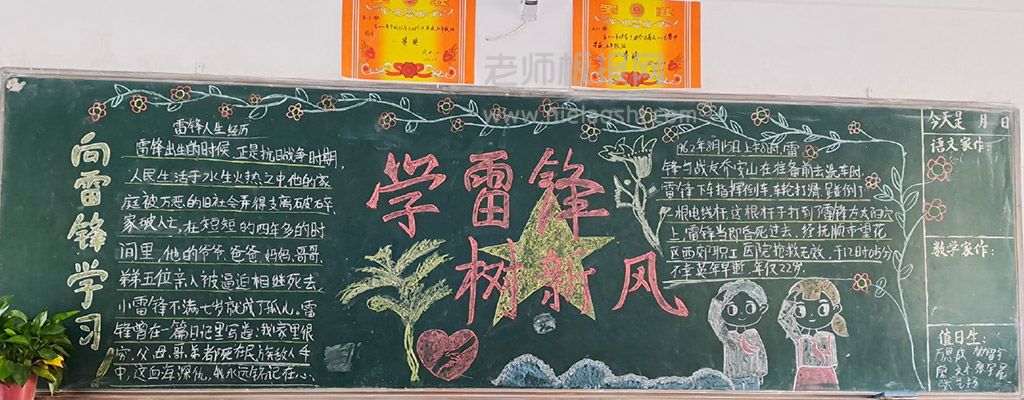 老师板报网
www.
向雷锋学习
雷锋人生经历
雷锋出生的时候,正是抗日战争时期,
人民生活于水生火热之中他的家
庭被万恶的旧社会弄得支离破碎,
家破人亡,在短短的四年多的时
间里,他的爷爷、爸爸、妈妈、哥哥、
弟弟五位亲人被逼迫相继死去,
小雷锋不满七岁就成了孤儿。雷
锋曾在一篇日记里写道:我家里很
穷,父、母、哥、弟都死在民族敌人手
中,这血海深仇,我永远铭记在心。
学雷锋
树新风
1962年8月15日上午8点,雷
锋与战友乔安山在准备前去洗车时,
雷锋下车指挥倒车,车轮打滑,撞倒了
一根电线杆这根杆子打到了雷锋左太阳穴
上,雷锋当即昏死过去,经抚顺市望花
区西部职工医院抢救无效,于12时05分
不幸英年早逝,年仅22岁
今天是 月 日
语文家作:
数学家作:
值日生: